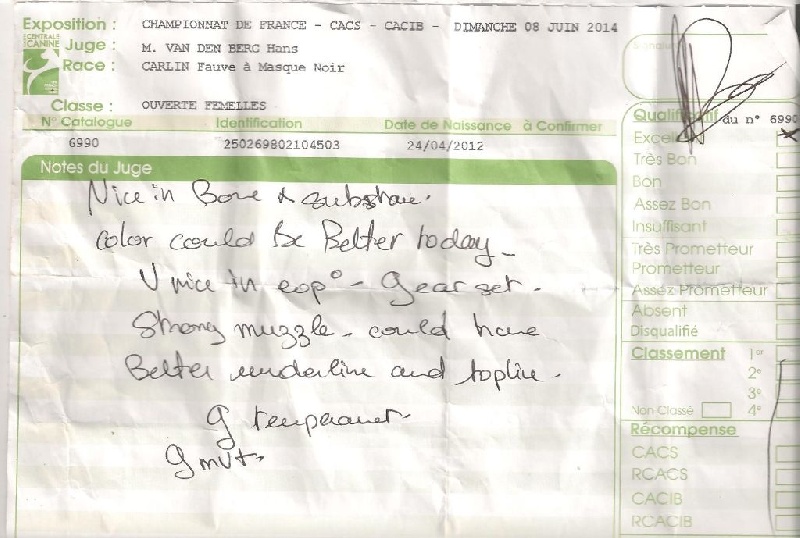 Exposition : CHAMPIONNAT DE FRANCE - CACS - CACIB - DIMANCHE 08 JUIN 2014
CENTRALE CANINE
Juge : M. VAN DEN BERG Hans
Race : CARLIN Fauve à Masque Noir
Classe : OUVERTE FEMELLES
N° Catalogue Identification Date de Naissance à Confirmer
6990 250269802104503 24/04/2012
Notes du Juge
Nice in Bone & substance.
color could be Better today -
V nice in exp° - G ear set.
Strong muzzle - could have
Better underline and topline.
G temperament.
G mvt
Qualificatif du n° 6990
Excellent
Très Bon
Bon
Assez Bon
Insuffisant
Très Prometteur
Prometteur
Assez Prometteur
Absent
Disqualifié
Classement 1er
2e
3e
Non Classé 4e
Récompense
CACS
RCACS
CACIB
RCACIB